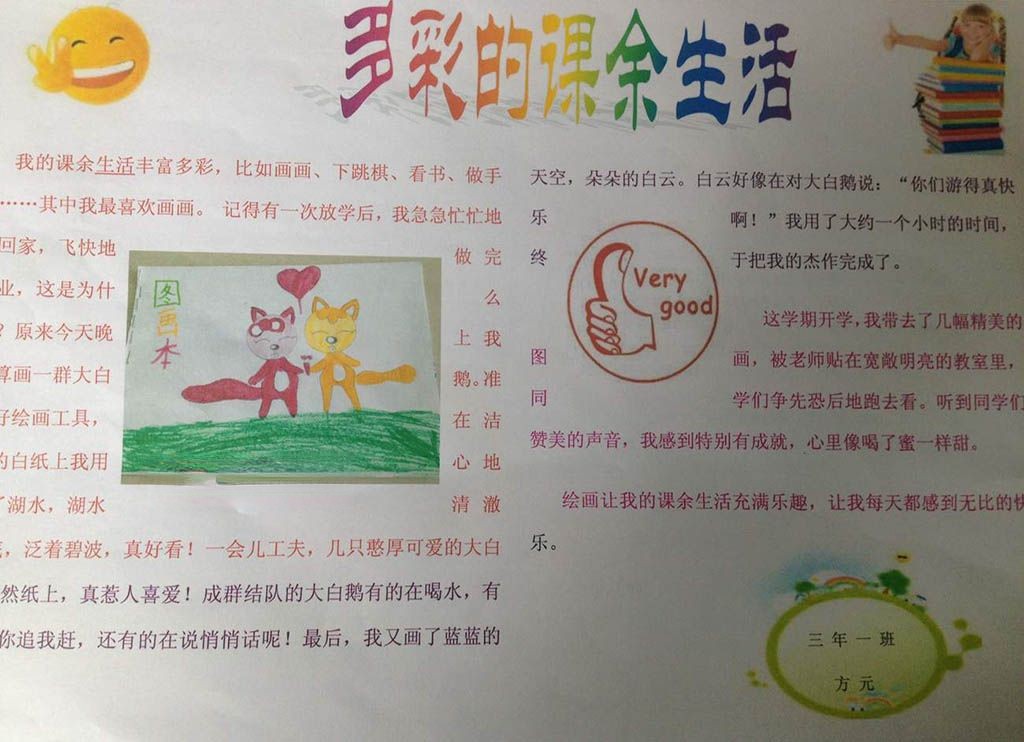 多彩的课余生活
我的课余生活丰富多彩，比如画画、下跳棋、看书、做手
……其中我最喜欢画画。 记得有一次放学后，我急急忙忙地
回家，飞快地 做 完
业，这是为什 么
？原来今天晚 上 我
算画一群大白 鹅。准
好绘画工具， 在 洁
的白纸上我用 心 地
了湖水，湖水 清 澈
，泛着碧波，真好看！一会儿工夫，几只憨厚可爱的大白
然纸上，真惹人喜爱！成群结队的大白鹅有的在喝水，有
你追我赶，还有的在说悄悄话呢！最后，我又画了蓝蓝的
图画本
天空，朵朵的白云。白云好像在对大白鹅说：“你们游得真快
乐 啊！”我用了大约一个小时的时间，
终 于把我的杰作完成了。
这学期开学，我带去了几幅精美的
图 画，被老师贴在宽敞明亮的教室里，
同 学们争先恐后地跑去看。听到同学们
赞美的声音，我感到特别有成就，心里像喝了蜜一样甜。
绘画让我的课余生活充满乐趣，让我每天都感到无比的快
乐。
Very
good
三年一班
方元